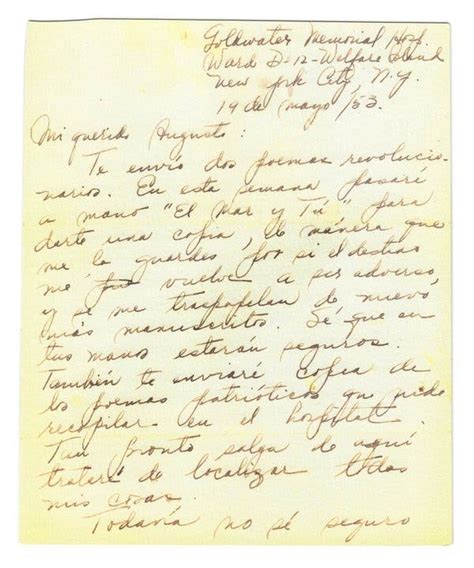 Goldwater Memorial Hosp.
Ward D-12-Welfare Island
New York City, N.Y.
19 de mayo/53.
Mi querido Augusto:
Te envío dos poemas revolucio-
narios. En esta semana pasaré
a mano "El Mar y Tú" para
darte una copia, de manera que
me la guardes por si el destino
me vuelve a ser adverso,
y se me traspapelan de nuevo
mis manuscritos. Sé que en
tus manos estarán seguros.
También te enviaré copia de
los poemas patrióticos que pude
recopilar en el hospital.
Tan pronto salga de aquí
trataré de localizar todas
mis cosas.
Todavía no sé seguro